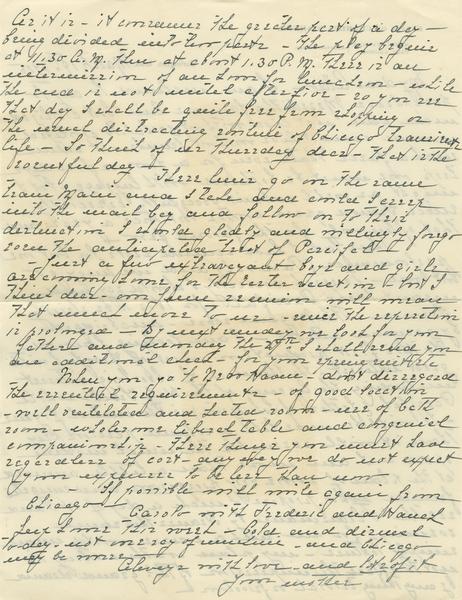 As it is - it consumes the greater part of a day -
being divided into two parts - The play begins
at 11.30 A.M. Then at about 1.30 P.M. There is an
intermission of an hour for luncheon - while
the end is not until after five - so you see
that day I shall be quite free from shopping or
the usual distracting routine of Chicago transient
life - So think of us Thursday dear - That is the
eventful day -
There lines go on the same
train Marie and I take and could I creep
into the mail bag and follow on to their
destination I would gladly and willingly forgo
even the anticipated treat of Parsifal
- Just a few extravagant boys and girls
are coming home for the Easter vacation but I
think dear - our June reunion will mean
that much more to us - since the separation
is prolonged - By next Sunday we look for your
letters and Tuesday the I shall send you
an additional check - for your expenses
When you go to New Haven - don't disregard
the essential requirements - of good location
- well ventilated and heated room - use of bath
room - wholesome liberal table and congenial
companionship - These things you must have
regardless of cost - any way we do not expect
your expenses to be less than now
- If possible will write again from
Chicago - Carolo with Frederic and Hansl
- leave home this week - Cold and dismal
today - not one ray of sunshine - and Chicago
may be worse
Always with love and
Your mother